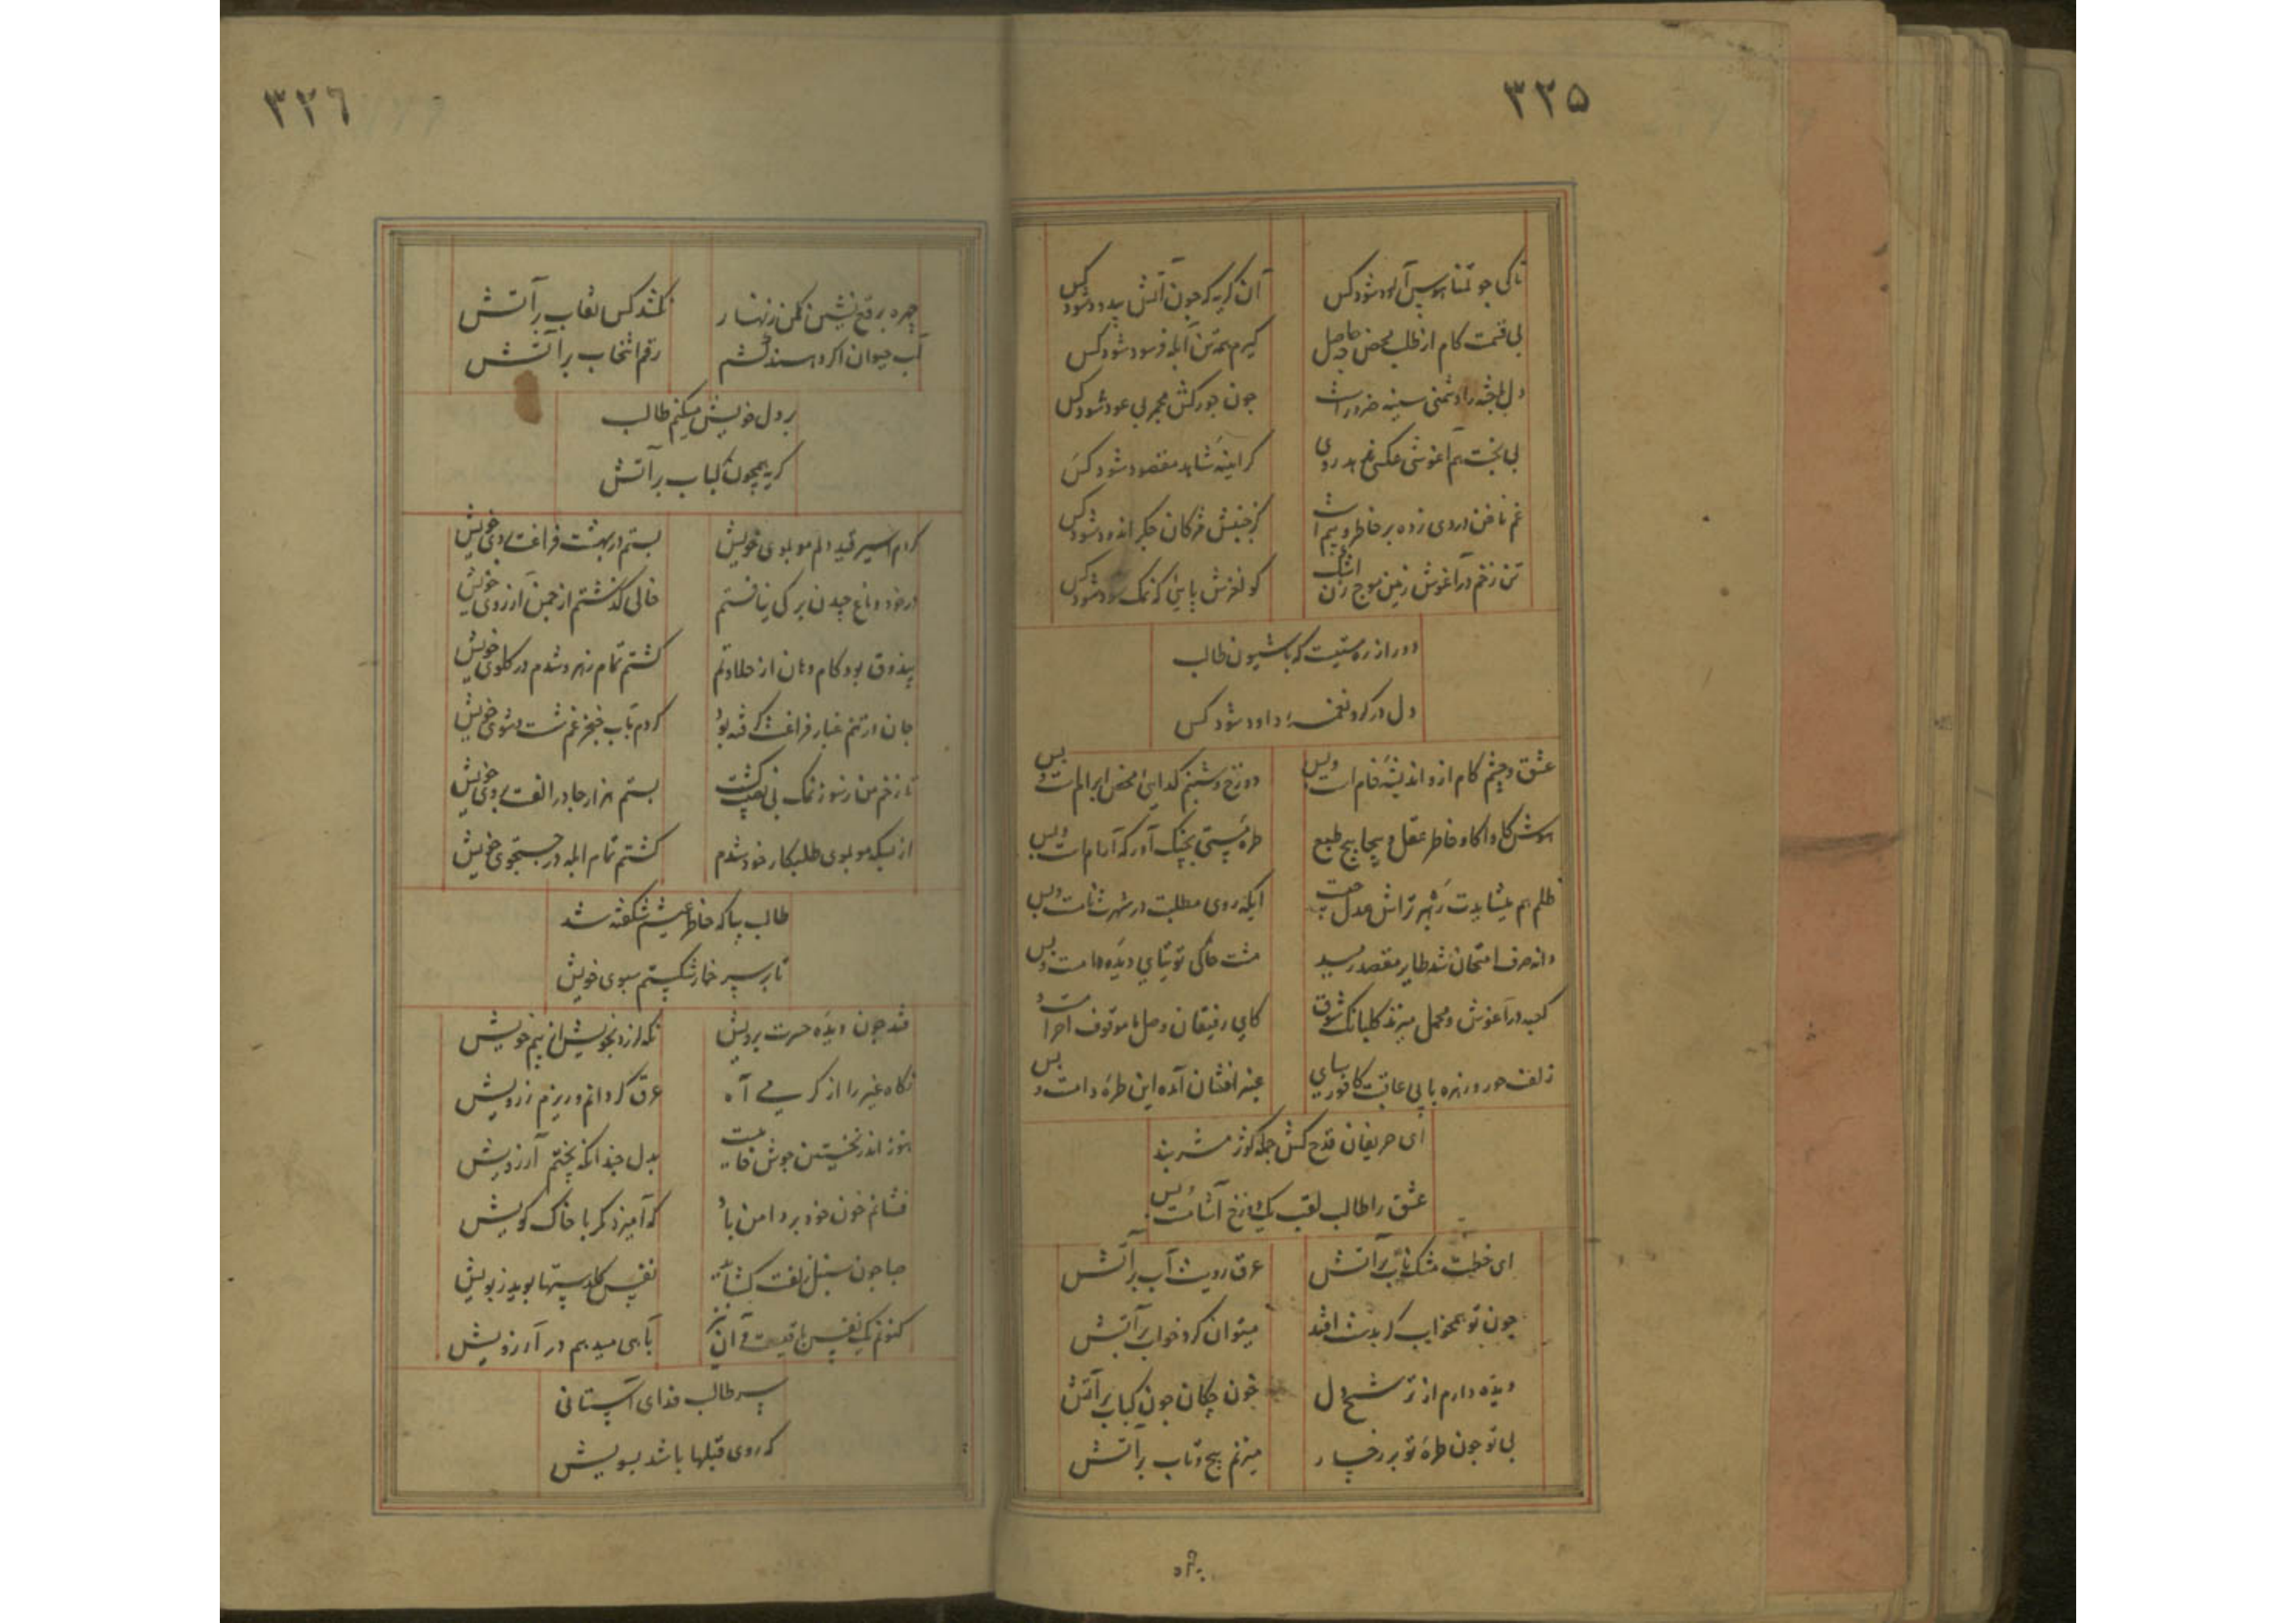 ۳۲۵
تا کی چو تمنا هوس آلود شود کس
آن گریه که چون آتش بیدود شود کس
بی قسمت کام از طلب محض چه حاصل
گیرم همه تن آبله فرسود شود کس
دل را دشمنی سینه ضرور است
چون جورکش مجمر بی عود شود کس
بی بخت هم آغوشی عکسی ندهد روی
گر آینه شاهد مقصود شود کس
غم ناخن دردی زده بر خاطر و بیم است
کز جنبش مژگان جگر اندود شود کس
تن زخم در آغوش زمین موج زن اشک
کو لغزش پایی که نمک سود شود کس
دور از ره است که با شیون طالب
دل در گرو نغمه داود شود کس
عشق و چشم کام ازو اندیشه خام است و بس
دوزخ و شبنم گدایی محض ابرام است و بس
هوش کاواکاو خاطر عقل و پیچاپیچ طبع
طره مستی بچنگ آور که آرام است و بس
ظلم هم میشایدت شهر تراش عدل
ایکه روی مطلبت در شهرت نام است و بس
دانه صرف امتحان شد طایر مقصد رسید
مشت خاکی توتیای دیده دام است و بس
کعبه در آغوش و محمل میزند گلبانگ شوق
کای رفیقان وصل ما موقوف احرام است و
زلف حور و زهره با بی عاقبت کافور سای
عنبر افشان آمده این طره دام است و بس
ای حریفان قدح کش جمله کوثر مشربند
عشق را طالب لقب یک دوزخ آشام است و بس
ای خطت مشک ناب بر آتش
عرق رویت آب بر آتش
چون تو همخوابه گر بدست افتد
میتوان کرد خواب بر آتش
دیده دارم از ترشح دل
خون چکان چون کباب بر آتش
بی تو چون طره تو بر رخسار
میزنم پیچ و تاب بر آتش
چهره
۳۲٦
چهره برقع نشین مکن زنهار
نکشد کس نقاب بر آتش
آب حیوان اگر دهندم کشم
رقم انتخاب بر آتش
بر دل خویش میکنم طالب
گریه همچون کباب بر آتش
کردم اسیر قید دلم موبموی خویش
بستم در بهشت فراغت بروی خویش
در خود دماغ چیدن برگی نیافتم
خالی گذشتم از چمن آرزوی خویش
بیذوق بود کام و دهان از حلاوتم
گشتم تمام زهر و شدم در گلوی خویش
جان در تنم غبار فراغت گرفته بود
کردم بآب خنجر غم شست و شوی خویش
تا زخم من ز سوز نمک بی نصیب گشت
بستم هزار جا در الفت بروی خویش
از بسکه موبموی طلبکار خود شدم
گشتم تمام آبله در جستجوی خویش
طالب بیا که خاطر عیشم شکفته شد
تا بر سر خمار شکستم سبوی خویش
فتد چون دیده حسرت برویش
نگه لرزد بخویش از بیم خویش
نگاه غیر را از گرمی آه
عرق گردانم و ریزم ز رویش
هنوز اندر نخستین جوش خامیست
بدل چندانکه پختم آرزویش
فشانم خون خود بر دامن باد
که آمیزد مگر با خاک کویش
صبا چون سنبل زلفت گشاید
نفس گلدستها بوید ز بویش
کنونم یک نفس باقیست و آن نیز
بآهی میدهم در آرزویش
سر طالب فدای آستانی
که روی قبلها باشد بسویش